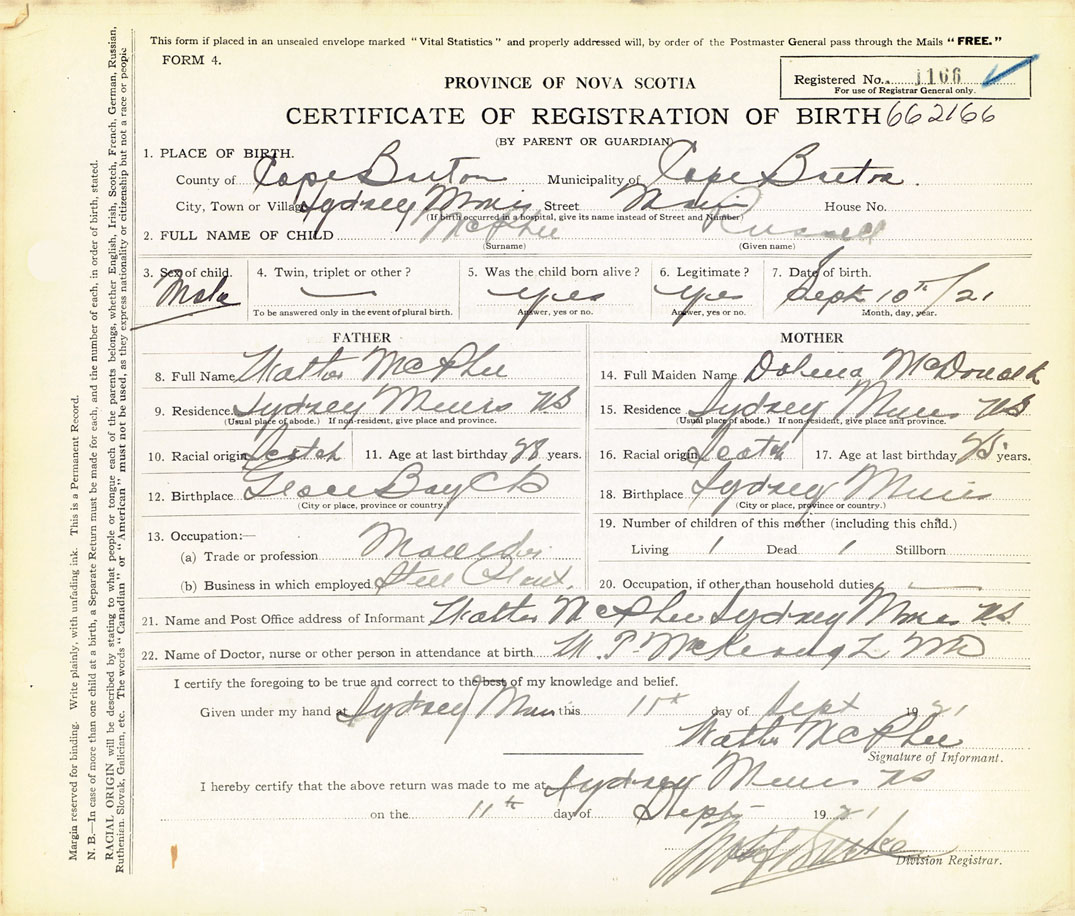 This form if placed in an unsealed envelope marked "Vital Statistics" and properly addressed will, by order of the Postmaster General pass through the Mails "FREE."
FORM 4.
PROVINCE OF NOVA SCOTIA
Registered No. 1166
For use of Registrar General only.
CERTIFICATE OF REGISTRATION OF BIRTH 662166
(BY PARENT OR GUARDIAN)
1. PLACE OF BIRTH.
County of Cape Breton Municipality of Cape Breton
City, Town or Village Sydney Mines Street Main House No.
(If birth occurred in a hospital, give its name instead of Street and Number)
2. FULL NAME OF CHILD McPhee Russell
(Surname) (Given name)
3. Sex of child. 4. Twin, triplet or other? 5. Was the child born alive? 6. Legitimate? 7. Date of birth.
Male — yes yes Sept 10th/21
To be answered only in the event of plural birth. Answer, yes or no. Answer, yes or no. Month, day, year.
FATHER
8. Full Name Walter McPhee
9. Residence Sydney Mines NS
(Usual place of abode.) If non-resident, give place and province.
10. Racial origin Scotch 11. Age at last birthday 28 years.
12. Birthplace Glace Bay CB
(City or place, province or country.)
13. Occupation:—
(a) Trade or profession Moulder
(b) Business in which employed Steel Plant
MOTHER
14. Full Maiden Name Dolena McDonald
15. Residence Sydney Mines NS
(Usual place of abode.) If non-resident, give place and province.
16. Racial origin Scotch 17. Age at last birthday 25 years.
18. Birthplace Sydney Mines
(City or place, province or country.)
19. Number of children of this mother (including this child.)
Living 1 Dead 1 Stillborn
20. Occupation, if other than household duties —
21. Name and Post Office address of Informant Walter McPhee Sydney Mines NS.
22. Name of Doctor, nurse or other person in attendance at birth MD
I certify the foregoing to be true and correct to the best of my knowledge and belief.
Given under my hand at Sydney Mines this 11th day of Sept 1921
Walter McPhee
Signature of Informant.
I hereby certify that the above return was made to me at Sydney Mines NS
on the 11th day of Sept 1921
Division Registrar.
Margin reserved for binding. Write plainly, with unfading ink. This is a Permanent Record.
N. B.—In case of more than one child at a birth, a Separate Return must be made for each, and the number of each, in order of birth, stated.
RACIAL ORIGIN will be described by stating to what people or tongue each of the parents belongs, whether English, Irish, Scotch, French, German, Russian,
Ruthenian, Slovak, Galician, etc. The words "Canadian" or "American" must not be used, as they express nationality or citizenship but not a race or people